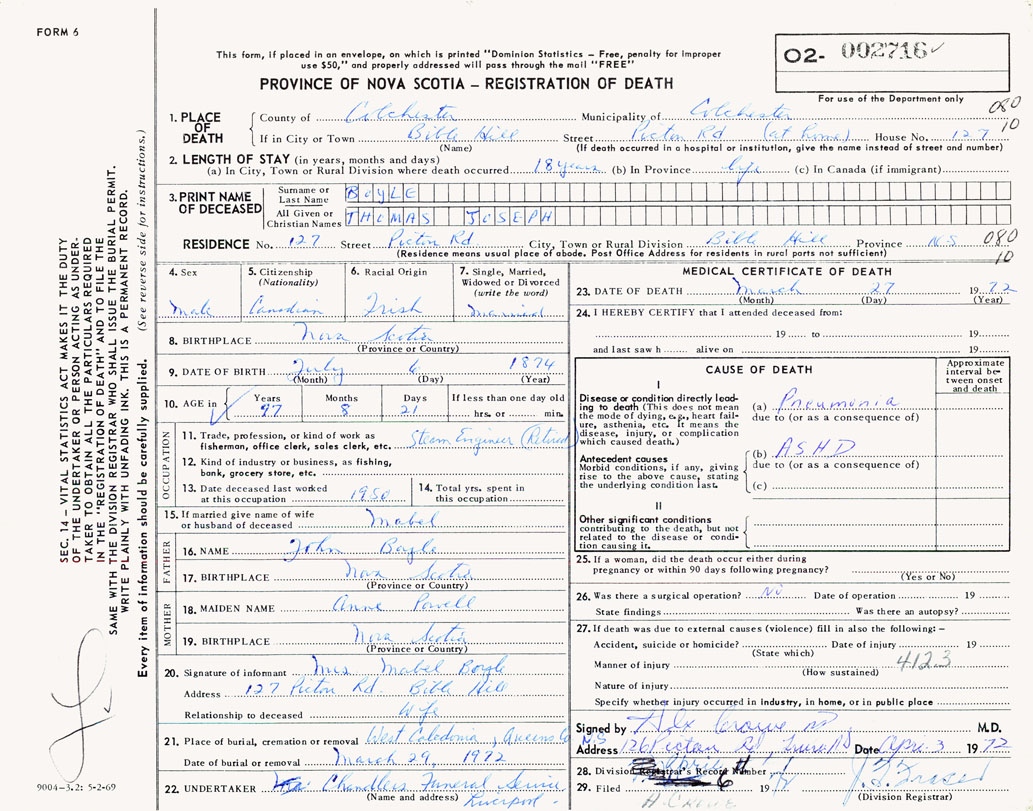 FORM 6
This form, if placed in an envelope, on which is printed "Dominion Statistics – Free, penalty for improper
use $50," and properly addressed will pass through the mail "FREE"
PROVINCE OF NOVA SCOTIA – REGISTRATION OF DEATH
02- 002716
For use of the Department only
080
10
1. PLACE OF DEATH
County of Colchester Municipality of Colchester
If in City or Town Bible Hill Street Picton Rd (at home) House No. 127
(Name) (If death occurred in a hospital or institution, give the name instead of street and number)
2. LENGTH OF STAY (in years, months and days)
(a) In City, Town or Rural Division where death occurred 18 years (b) In Province life (c) In Canada (if immigrant)
3. PRINT NAME OF DECEASED
Surname or Last Name BOYLE
All Given or Christian Names THOMAS JOSEPH
RESIDENCE No. 127 Street Picton Rd City, Town or Rural Division Bible Hill Province N.S 080
(Residence means usual place of abode. Post Office Address for residents in rural parts not sufficient) 10
4. Sex
Male
5. Citizenship
(Nationality)
Canadian
6. Racial Origin
Irish
7. Single, Married,
Widowed or Divorced
(write the word)
Married
8. BIRTHPLACE Nova Scotia
(Province or Country)
9. DATE OF BIRTH July 6 1874
(Month) (Day) (Year)
10. AGE in Years Months Days If less than one day old
97 8 21 hrs. or min.
OCCUPATION
11. Trade, profession, or kind of work as
fisherman, office clerk, sales clerk, etc. Steam Engineer (Retired)
12. Kind of industry or business, as fishing,
bank, grocery store, etc.
13. Date deceased last worked
at this occupation 1950
14. Total yrs. spent in
this occupation
15. If married give name of wife
or husband of deceased Mabel
FATHER
16. NAME John Boyle
17. BIRTHPLACE Nova Scotia
(Province or Country)
MOTHER
18. MAIDEN NAME Anne Powell
19. BIRTHPLACE Nova Scotia
(Province or Country)
20. Signature of informant Mrs. Mabel Boyle
Address 127 Picton Rd. Bible Hill
Relationship to deceased Wife
21. Place of burial, cremation or removal West Caledonia, Queens Co N.S
Date of burial or removal March 29, 1972
22. UNDERTAKER Chandlers Funeral Service
(Name and address) Liverpool
MEDICAL CERTIFICATE OF DEATH
23. DATE OF DEATH March 27 1972
(Month) (Day) (Year)
24. I HEREBY CERTIFY that I attended deceased from:
19 to 19
and last saw h alive on 19
CAUSE OF DEATH
Approximate
interval be-
tween onset
and death
I
Disease or condition directly lead-
ing to death (This does not mean
the mode of dying, e.g., heart fail-
ure, asthenia, etc. It means the
disease, injury, or complication
which caused death.)
(a) Pneumonia
due to (or as a consequence of)
Antecedent causes
Morbid conditions, if any, giving
rise to the above cause, stating
the underlying condition last.
(b) ASHD
due to (or as a consequence of)
(c)
II
Other significant conditions
contributing to the death, but not
related to the disease or condi-
tion causing it.
25. If a woman, did the death occur either during
pregnancy or within 90 days following pregnancy?
(Yes or No)
26. Was there a surgical operation? No Date of operation 19
State findings Was there an autopsy?
27. If death was due to external causes (violence) fill in also the following: –
Accident, suicide or homicide? Date of injury 19
(State which)
Manner of injury 4123
(How sustained)
Nature of injury
Specify whether injury occurred in industry, in home, or in public place
Signed by Alx Crowe M.D.
Address 126 Picton Rd, Truro NS Date Apr. 3 1972
28. Division Registrar's Record Number
29. Filed April 6th 19 72
(Division Registrar)
SEC. 14 – VITAL STATISTICS ACT MAKES IT THE DUTY
OF THE UNDERTAKER OR PERSON ACTING AS UNDER-
TAKER TO OBTAIN ALL THE PARTICULARS REQUIRED
IN THE "REGISTRATION OF DEATH" AND TO FILE THE
SAME WITH THE DIVISION REGISTRAR WHO SHALL ISSUE THE BURIAL PERMIT.
WRITE PLAINLY WITH UNFADING INK. THIS IS A PERMANENT RECORD.
Every item of information should be carefully supplied. (See reverse side for instructions.)
9004–3.2: 5-2-69